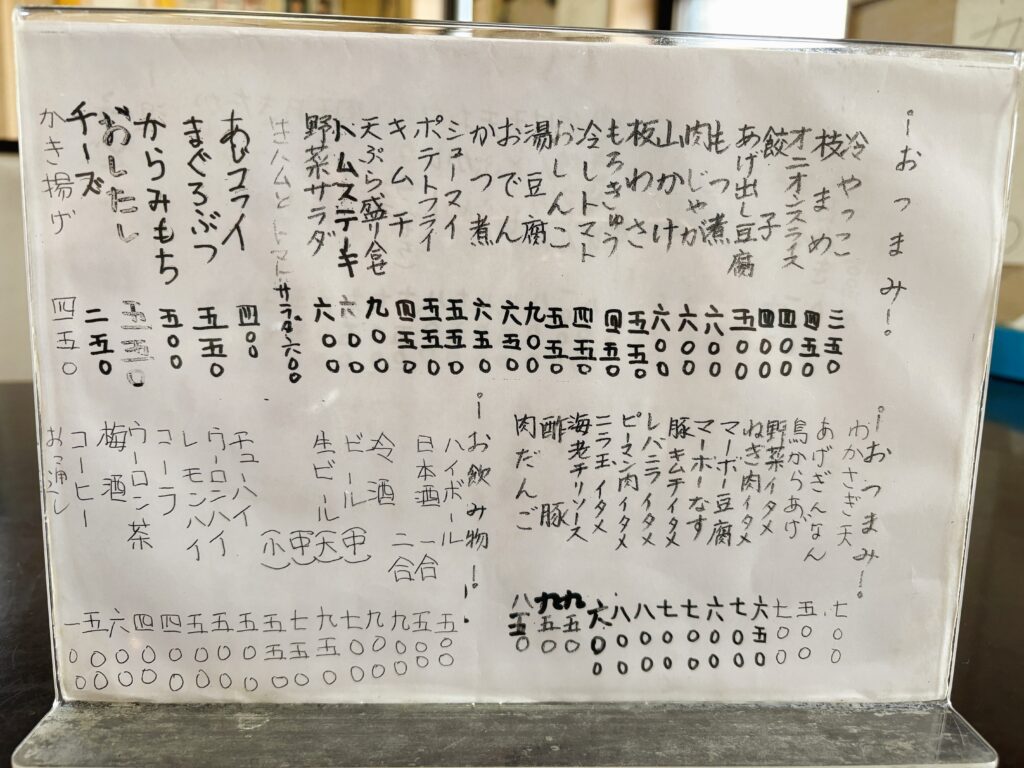 ーおつまみー
冷やっこ 三五〇
枝まめ 四五〇
オニオンスライス 四〇〇
餃子 四〇〇
あげ出し豆腐 五〇〇
もつ煮 六〇〇
肉じゃが 六〇〇
山かけ 六〇〇
板わさ 五五〇
もろきゅう 四五〇
冷しトマト 四五〇
おしんこ 五五〇
湯豆腐 九〇〇
おでん 六五〇
かつ煮 六〇〇
シューマイ 五五〇
ポテトフライ 五五〇
キムチ 四五〇
天ぷら盛り合せ 九〇〇
ハムステーキ 六〇〇
野菜サラダ 六〇〇
生ハムとトマトサラダ 六〇〇
あじフライ 四〇〇
まぐろぶつ 五五〇
からみもち 五〇〇
おしたし 五五〇
チーズ 二五〇
かき揚げ 四五〇
ーおつまみー
わかさぎ天 七〇〇
あげぎんなん 五〇〇
鳥からあげ 七〇〇
野菜イタメ 六五〇
ねぎ肉イタメ 七〇〇
マーボー豆腐 六〇〇
マーボーなす 七〇〇
豚キムチイタメ 七〇〇
レバニライタメ 八〇〇
ピーマン肉イタメ 八〇〇
ニラ玉イタメ 六〇〇
海老チリソース 九五〇
酢豚 九五〇
肉だんご 八五〇
ーお飲み物ー
ハイボール 五〇〇
日本酒 一合 五〇〇
二合 九〇〇
冷酒 九〇〇
ビール (中) 七〇〇
(大) 九五〇
生ビール (中) 七五〇
(小) 五五〇
チューハイ 五〇〇
ウーロンハイ 五〇〇
レモンハイ 五〇〇
コーラ 四〇〇
ウーロン茶 四〇〇
梅酒 六〇〇
コーヒー 五〇〇
お通し 一〇〇